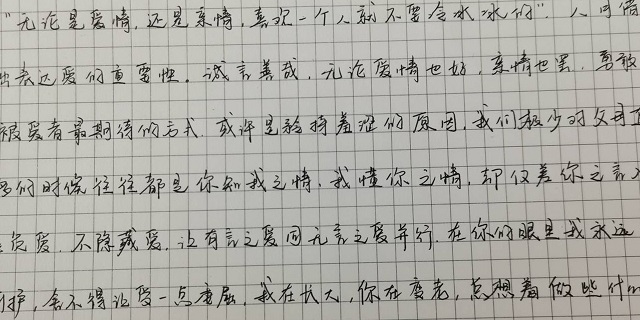 "无论是爱情,还是亲情,喜欢一个人就不要冷冰冰的"人可
表达爱的重要性。诚言善哉,无论爱情也好,亲情也罢,勇敢
被爱者最期待的方式。或许是矜持羞涩的原因,我们极少对父母
的时候往往都是你知我之情,我懂你之情,却仅差你之言
负爱,不隐藏爱,让有言之爱同无言之爱并行,在你的眼里我永远
护,舍不得让受一点委屈,我在长大,你在变老,总想着做些什